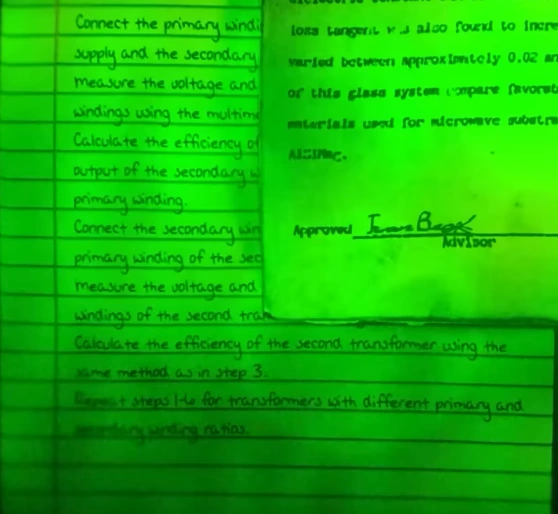 Connect the primary
supply and the secondary
measure the voltage and
windings using the
Calculate the efficiency of
output of the secondary
primary winding.
Connect the secondary
primary winding of the
measure the voltage and
windings of the second
Calculate the efficiency of the second transformer using the
same method as in step 3.
Repeat steps 1-6 for transformers with different primary and
secondary winding ratios.
loss tangent was also found to
varied between approximately 0.02
of this glass system compare
materials used for microwave
Approved
Advisor